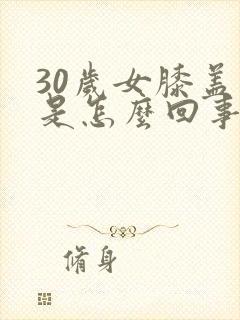 30歲女膝盖
是怎麼回事
脩身